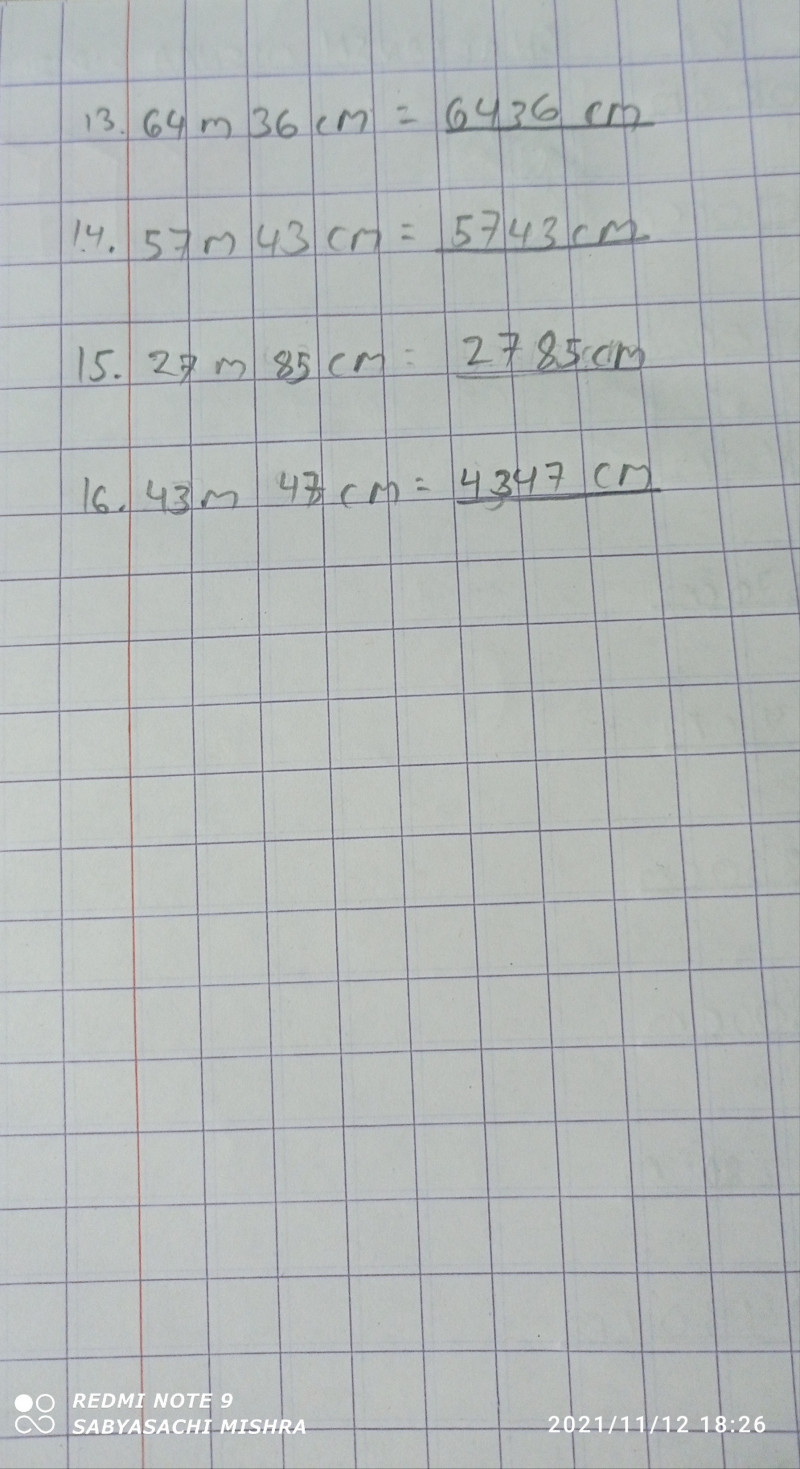 13. 64 m 36 cm = 6436 cm
14. 57 m 43 cm = 5743 cm
15. 27 m 85 cm = 2785 cm
16. 43 m 47 cm = 4347 cm
REDMI NOTE 9
SABYASACHI MISHRA
2021/11/12 18:26